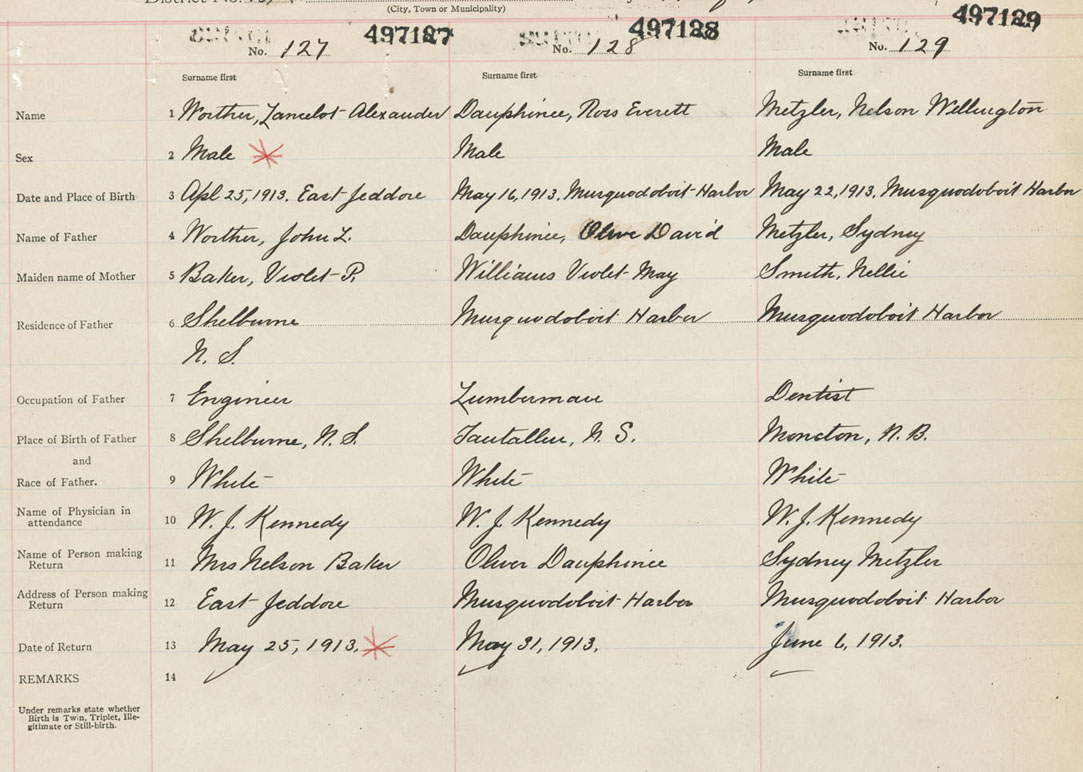 District No.
(City, Town or Municipality)
No. 127 497127 No. 128 497128 No. 129 497129
Surname first Surname first Surname first
Name 1 Worther, Lancelot Alexander Dauphinee, Ross Everett Metzler, Nelson Willington
Sex 2 Male Male Male
Date and Place of Birth 3 Apl 25, 1913. East Jeddore May 16, 1913. Musquodoboit Harbor May 22, 1913. Musquodoboit Harbor
Name of Father 4 Worther, John L. Dauphinee, David Metzler, Sydney
Maiden name of Mother 5 Baker, Violet P. Williams Violet May Smith, Nellie
Residence of Father 6 Shelburne Musquodoboit Harbor Musquodoboit Harbor
N. S.
Occupation of Father 7 Engineer Lumberman Dentist
Place of Birth of Father 8 Shelburne, N. S. N. S. Moncton, N. B.
and
Race of Father. 9 White White White
Name of Physician in
attendance 10 W. J. Kennedy W. J. Kennedy W. J. Kennedy
Name of Person making
Return 11 Mrs Nelson Baker Oliver Dauphinee Sydney Metzler
Address of Person making
Return 12 East Jeddore Musquodoboit Harbor Musquodoboit Harbor
Date of Return 13 May 25, 1913. May 31, 1913. June 6, 1913.
REMARKS 14
Under remarks state whether
Birth is Twin, Triplet, Ille-
gitimate or Still-birth.